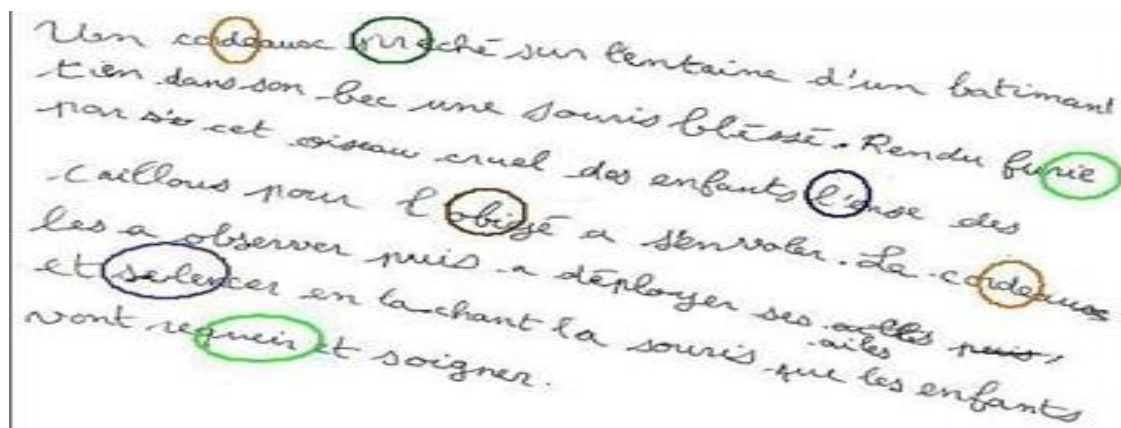 Un cordeaux preché sur l'entaine d'un batimant
tien dans son bec une souris bléssé. Rendu furie
par cet oiseau cruel des enfants l'ense des
caillous pour l'obigé a s'envoler. Le cordeaux
les a observer puis a déployer ses ailes puis,
et selencer en lachant la souris que les enfants
vont requeir et soigner.